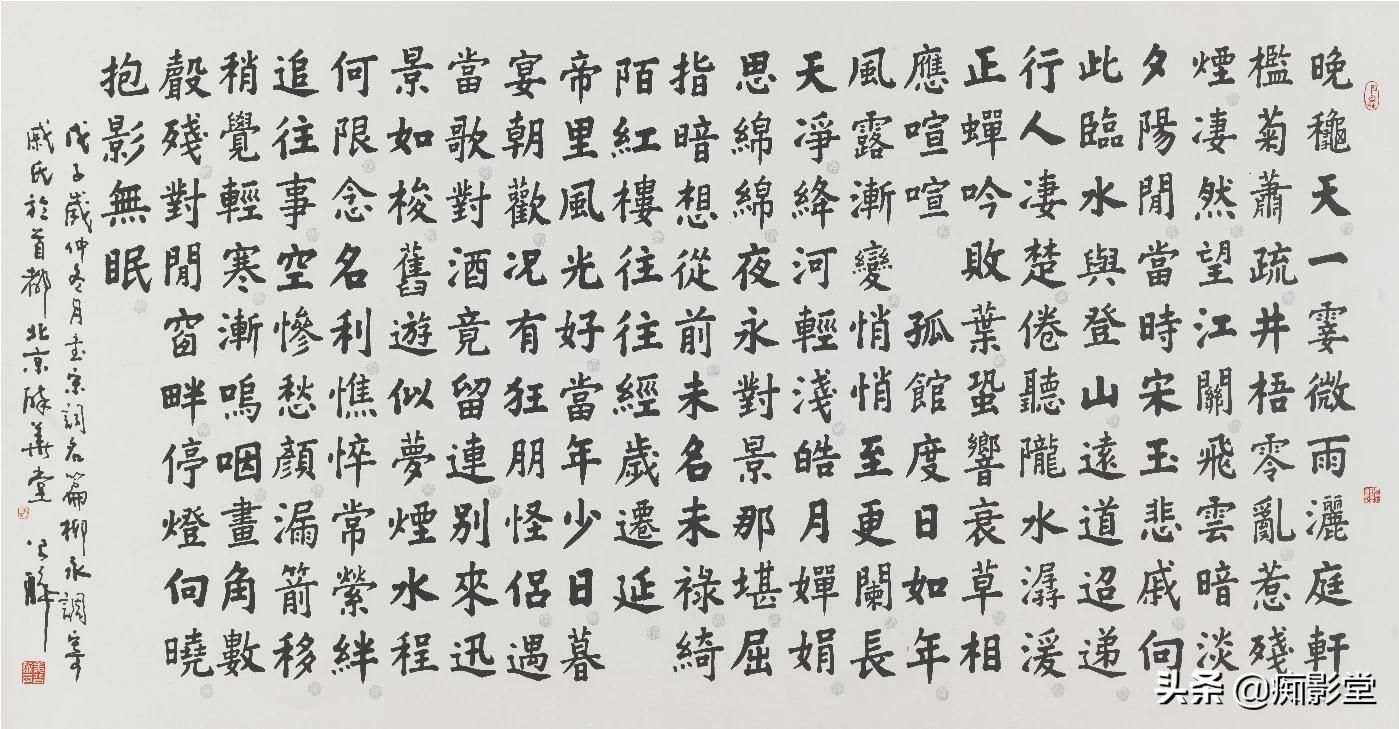 晚穐天一霎微雨灑庭軒
檻菊蕭疏井梧零亂惹殘
煙凄然望江關飛雲暗淡
夕陽閒當時宋玉悲戚向
此臨水與登山遠道迢递
行人凄楚倦聽隴水潺湲
正蟬吟敗葉蛩響衰草相
應喧喧 孤館度日如年
風露漸變悄悄至更闌長
天凈絳河輕淺皓月嬋娟
思綿綿夜永對景那堪屈
指暗想從前未名未祿綺
陌紅樓往往經歲遷延
帝里風光好當年少日暮
宴朝歡况有狂朋怪侶遇
當歌對酒竟留連別來迅
景如梭舊遊似夢煙水程
何限念名利憔悴常縈絆
追往事空慘愁顏漏箭移
稍覺輕寒漸嗚咽畫角數
聲殘對閒窗畔停燈向曉
抱影無眠
戊子歲仲冬月書宋詞名篇柳永調寄
戚氏於首都北京華堂
头条 @痴影堂